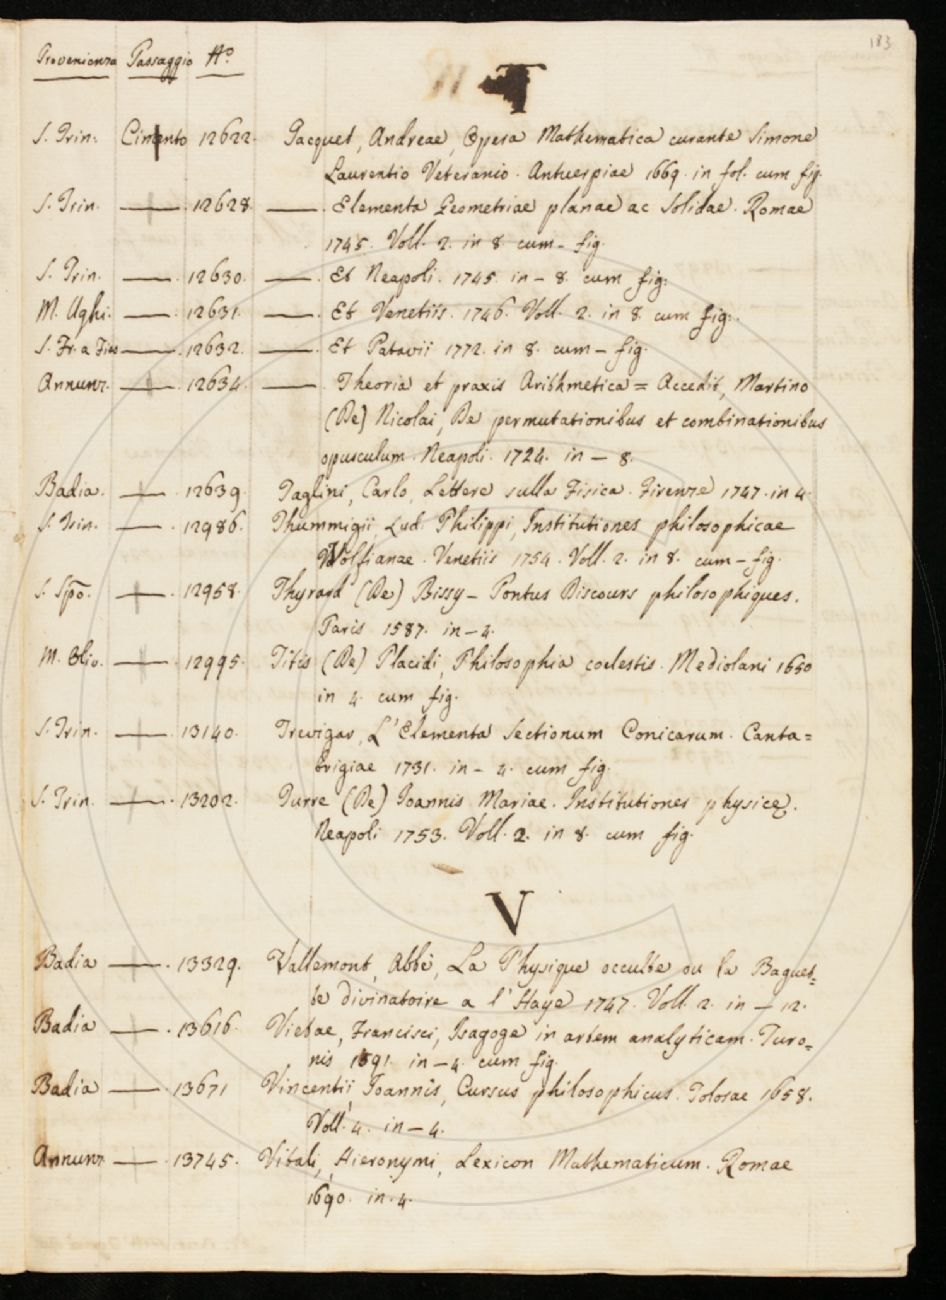 183
Provenienza Passaggio N.o
T
S. Trin. Cimento 12622. Tacquet, Andreae, Opera Mathematica curante Simone
Laurentio Veteranio. Antuerpiae 1669. in fol. cum fig.
S. Trin. —— 12628. —— Elementa Geometriae planae ac Solidae. Romae
1745. Voll. 2. in 8 cum - fig.
S. Trin. —— 12630. —— Et Neapoli. 1745. in - 8. cum fig.
M. Ughi. —— 12631. —— Et Venetiis. 1746. Voll. 2. in 8. cum fig.
S. Fr. a Fies —— 12632. —— Et Patavii 1772. in 8. cum - fig.
Annunz. —— 12634. —— Theoria et praxis Arithmetica = Accedit, Martino
(De) Nicolai, De permutationibus et combinationibus
opusculum. Neapoli. 1724. in — 8.
Badia. —— 12639. Taglini, Carlo, Lettere sulla Fisica. Firenze 1747. in 4.
S. Trin. —— 12986. Thummigii, Lud. Philippi, Institutiones philosophicae
Wolfianae. Venetiis 1754. Voll. 2. in 8. cum - fig.
S. Spo. —— 12958. Thyrard (De) Bissy - Pontus Discours philosophiques.
Paris 1587. in - 4.
M. Oliv. —— 12995. Titis (De) Placidi, Philosophia coelestis. Mediolani 1650
in 4. cum fig.
S. Trin. —— 13140. Trevigar, L' Elementa Sectionum Conicarum. Canta=
brigiae 1731. in - 4. cum fig.
S. Trin. —— 13202. Turre (De) Joannis Mariae. Institutiones physicę.
Neapoli 1753. Voll. 2. in 8. cum fig.
V
Badia —— 13329. Vallemont, Abbé, La Physique occulte ou la Baguet=
te divinatoire a l' Haye 1747. Voll. 2. in — 12.
Badia —— 13616. Vietae, Francisci, Isagoge in artem analyticam. Turo=
nis 1591. in - 4. cum fig.
Badia —— 13671 Vincentii, Joannis, Cursus philosophicus. Tolosae 1658.
Voll. 4. in - 4.
Annunz —— 13745. Vitali, Hieronymi, Lexicon Mathematicum. Romae
1690. in. 4.